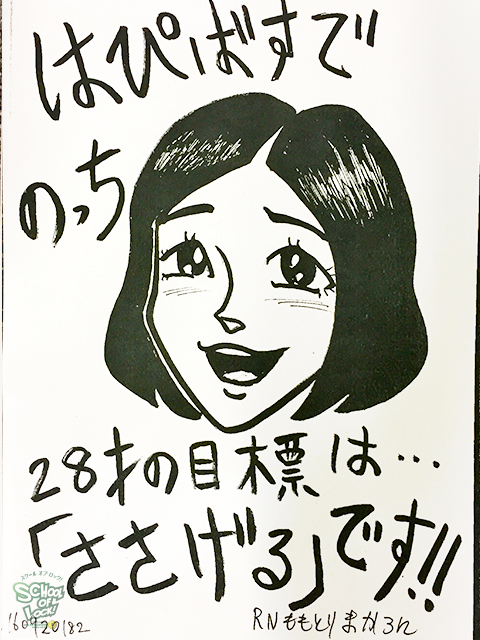 はぴばすでのっち
28才の目標は…
「ささげる」です!!
スクールオブロック!
SCHOOL OF LOCK!
'160920182
RNももとりまかろん